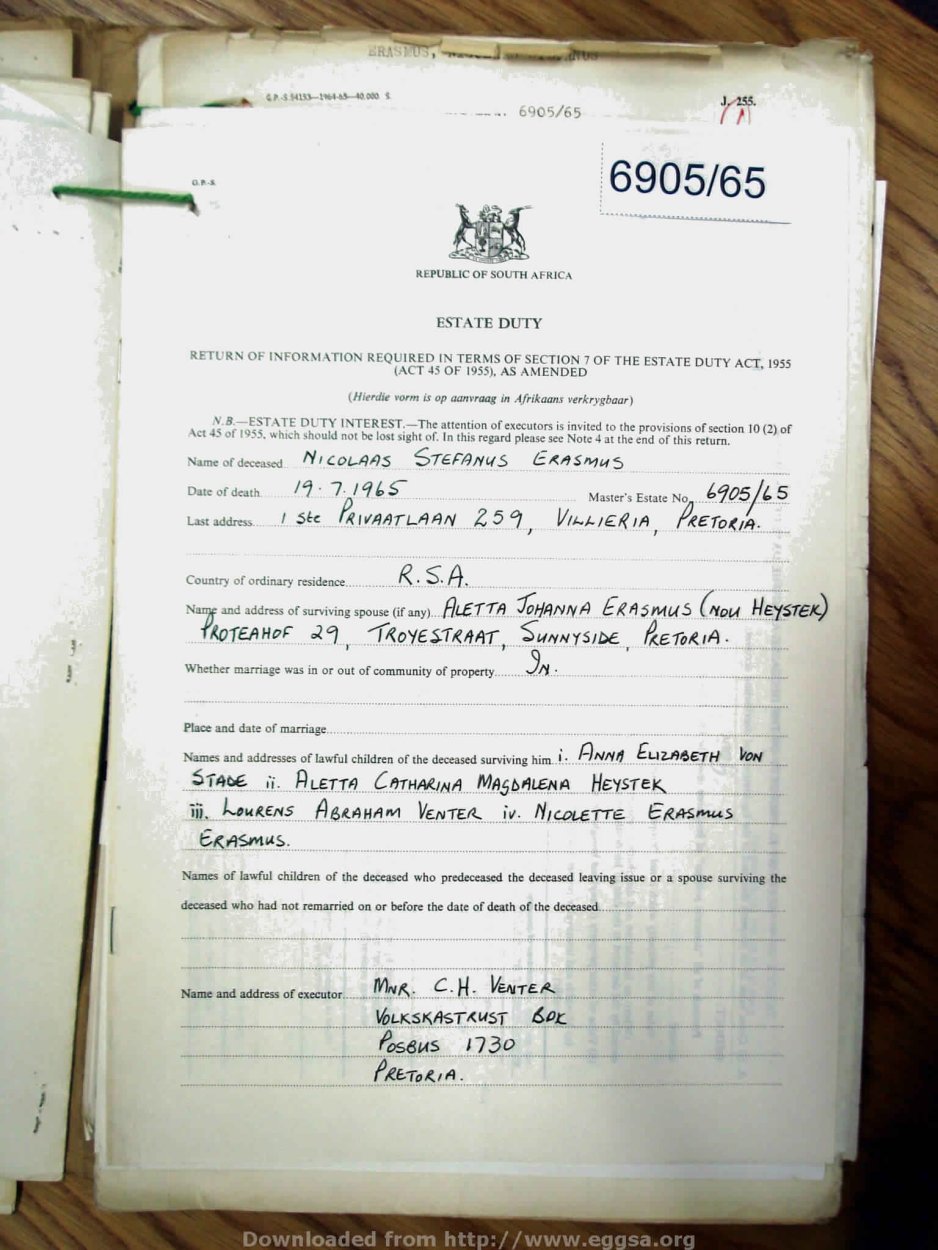 ERASMUS,
G.P.-S.54153—1964-65—40,000. S.
J. 255.
6905/65
6905/65
G.P.-S.
REPUBLIC OF SOUTH AFRICA
ESTATE DUTY
RETURN OF INFORMATION REQUIRED IN TERMS OF SECTION 7 OF THE ESTATE DUTY ACT, 1955
(ACT 45 OF 1955), AS AMENDED
(Hierdie vorm is op aanvraag in Afrikaans verkrygbaar)
N.B.—ESTATE DUTY INTEREST.—The attention of executors is invited to the provisions of section 10 (2) of
Act 45 of 1955, which should not be lost sight of. In this regard please see Note 4 at the end of this return.
Name of deceased NICOLAAS STEFANUS ERASMUS
Date of death 19.7.1965 Master's Estate No. 6905/65
Last address 1 Ste PRIVAATLAAN 259, VILLIERIA, PRETORIA.
Country of ordinary residence R.S.A.
Name and address of surviving spouse (if any) ALETTA JOHANNA ERASMUS (NOU HEYSTEK)
PROTEAHOF 29, TROYESTRAAT, SUNNYSIDE, PRETORIA.
Whether marriage was in or out of community of property IN.
Place and date of marriage
Names and addresses of lawful children of the deceased surviving him i. ANNA ELIZABETH VON
STADE ii. ALETTA CATHARINA MAGDALENA HEYSTEK
iii. LOURENS ABRAHAM VENTER iv. NICOLETTE ERASMUS
ERASMUS.
Names of lawful children of the deceased who predeceased the deceased leaving issue or a spouse surviving the
deceased who had not remarried on or before the date of death of the deceased
Name and address of executor MNR. C.H. VENTER
VOLKSKASTRUST BPK
POSBUS 1730
PRETORIA.
Downloaded from http://www.eggsa.org